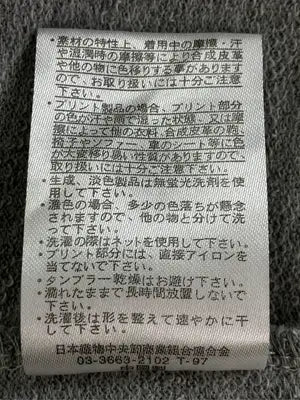 ・素材の特性上、着用中の摩擦・汗
や湿潤時の摩擦等により合成皮革
や他の物に色移りする事がありますの
で、お取り扱いには十分ご注意
下さい。
・プリント製品の場合、プリント部分
の色が汗や雨で湿った状態、又は摩
擦によって他の衣料、合成皮革の鞄、
椅子やソファー、車のシート等に色
が大変移り易い性質がありますので、
お取り扱いには十分ご注意
下さい。
・生成、淡色製品は無蛍光洗剤を使
用して下さい。
・濃色の場合、多少の色落ちが懸念
されますので、他の物と分けて洗
って下さい。
・洗濯の際はネットを使用して下さい。
・プリント部分には、直接アイロンを
当てないで下さい。
・タンブラー乾燥はお避け下さい。
・濡れたままで長時間放置しないで
下さい。
・洗濯後は形を整えて速やかに干
して下さい。
日本織物中央卸商業組合連合会
03-3663-2102 T-97